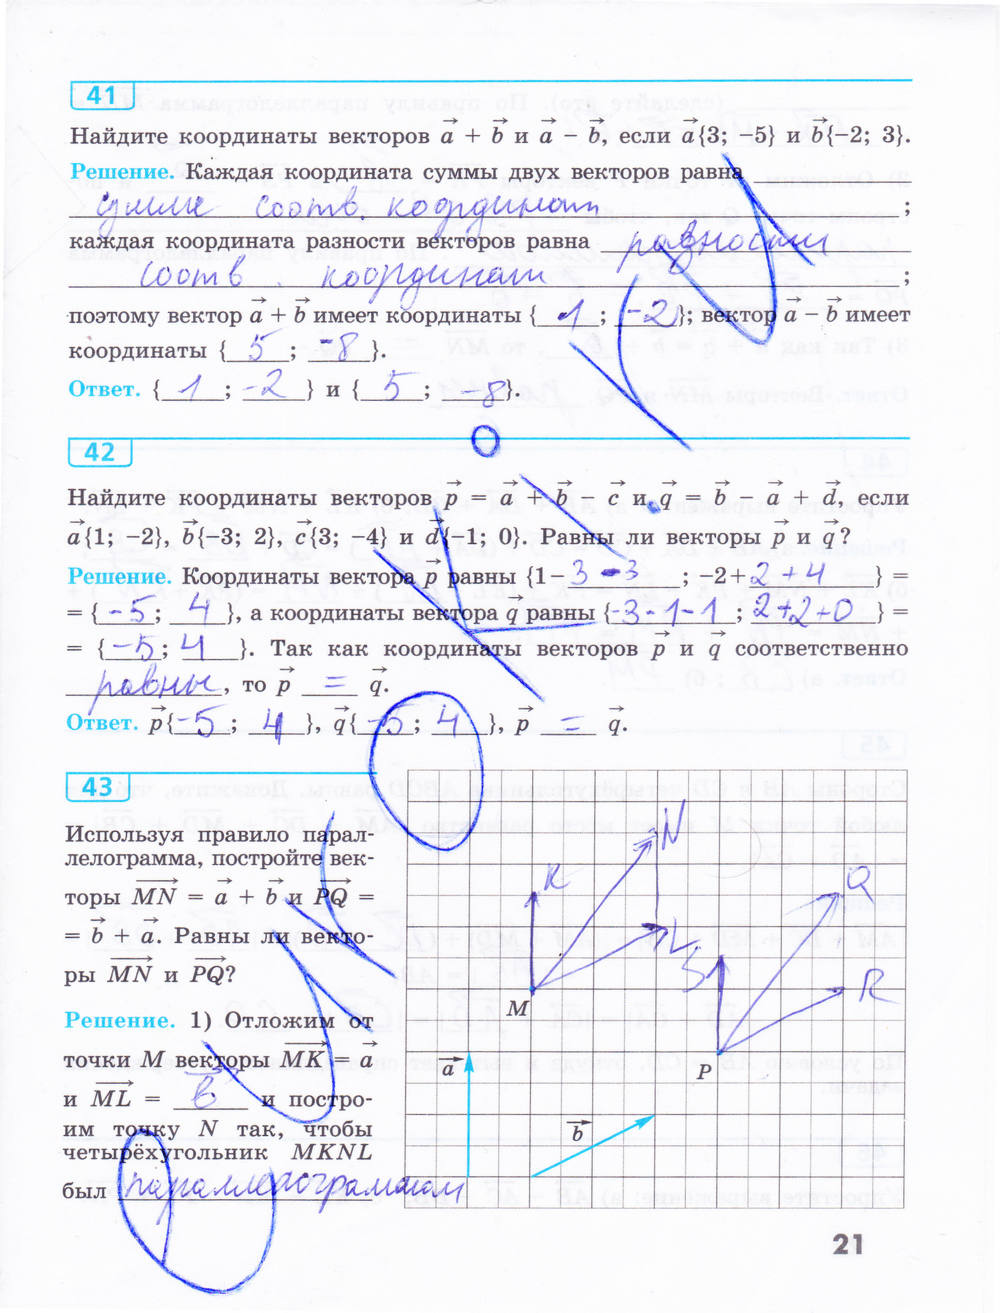 41
Найдите координаты векторов a + b и a − b, если a{3; −5} и b{−2; 3}.
Решение. Каждая координата суммы двух векторов равна
сумме соотв. координат ;
каждая координата разности векторов равна разности
соотв. координат ;
поэтому вектор a + b имеет координаты { 1 ; −2 }; вектор a − b имеет
координаты { 5 ; −8 }.
Ответ. { 1 ; −2 } и { 5 ; −8 }.
42
Найдите координаты векторов p = a + b − c и q = b − a + d, если
a{1; −2}, b{−3; 2}, c{3; −4} и d{−1; 0}. Равны ли векторы p и q?
Решение. Координаты вектора p равны {1− 3 − 3 ; −2+ 2 + 4 } =
= { −5 ; 4 }, а координаты вектора q равны { −3−1−1 ; 2+2+0 } =
= { −5 ; 4 }. Так как координаты векторов p и q соответственно
равны , то p = q.
Ответ. p{ −5 ; 4 }, q{ −5 ; 4 }, p = q.
43
Используя правило парал-
лелограмма, постройте век-
торы MN = a + b и PQ =
= b + a. Равны ли векто-
ры MN и PQ?
Решение. 1) Отложим от
точки M векторы MK = a
и ML = b и постро-
им точку N так, чтобы
четырёхугольник MKNL
был параллелограммом
N
K
Q
L
S
R
M
P
a
b
21